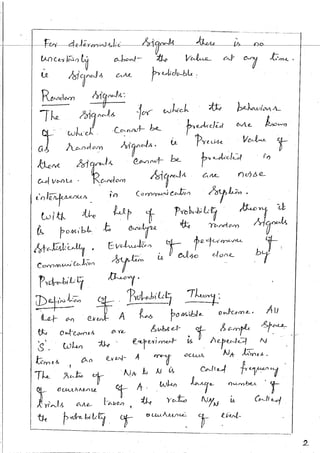 For deterministic Signals there is no
uncertainty about the Value at any time.
ie Signals are predictable.
Random Signals:
The Signals for which the behaviour
of which Cannot be predicted are known
as Random Signals. ie Precise Value of
these Signals Cannot be predicted in
advance. Random Signals are noise
interferences in Communication System.
With the help of Probability theory it
is possible to analyse the random Signals
Statistically. Evaluation of performance of
Communication System is also done by
Probability theory.
Definition of Probability Theory:
Let an event A has possible outcome. All
the outcomes are Subset of Sample Space
'S'. When the experiment is repeated N
times, an event A may occur NA times.
The Ratio of NA & N is Called frequency
of occurrence of A. When large number of
trials are taken, the ratio NA/N is Called
the probability of occurrence of event.
2